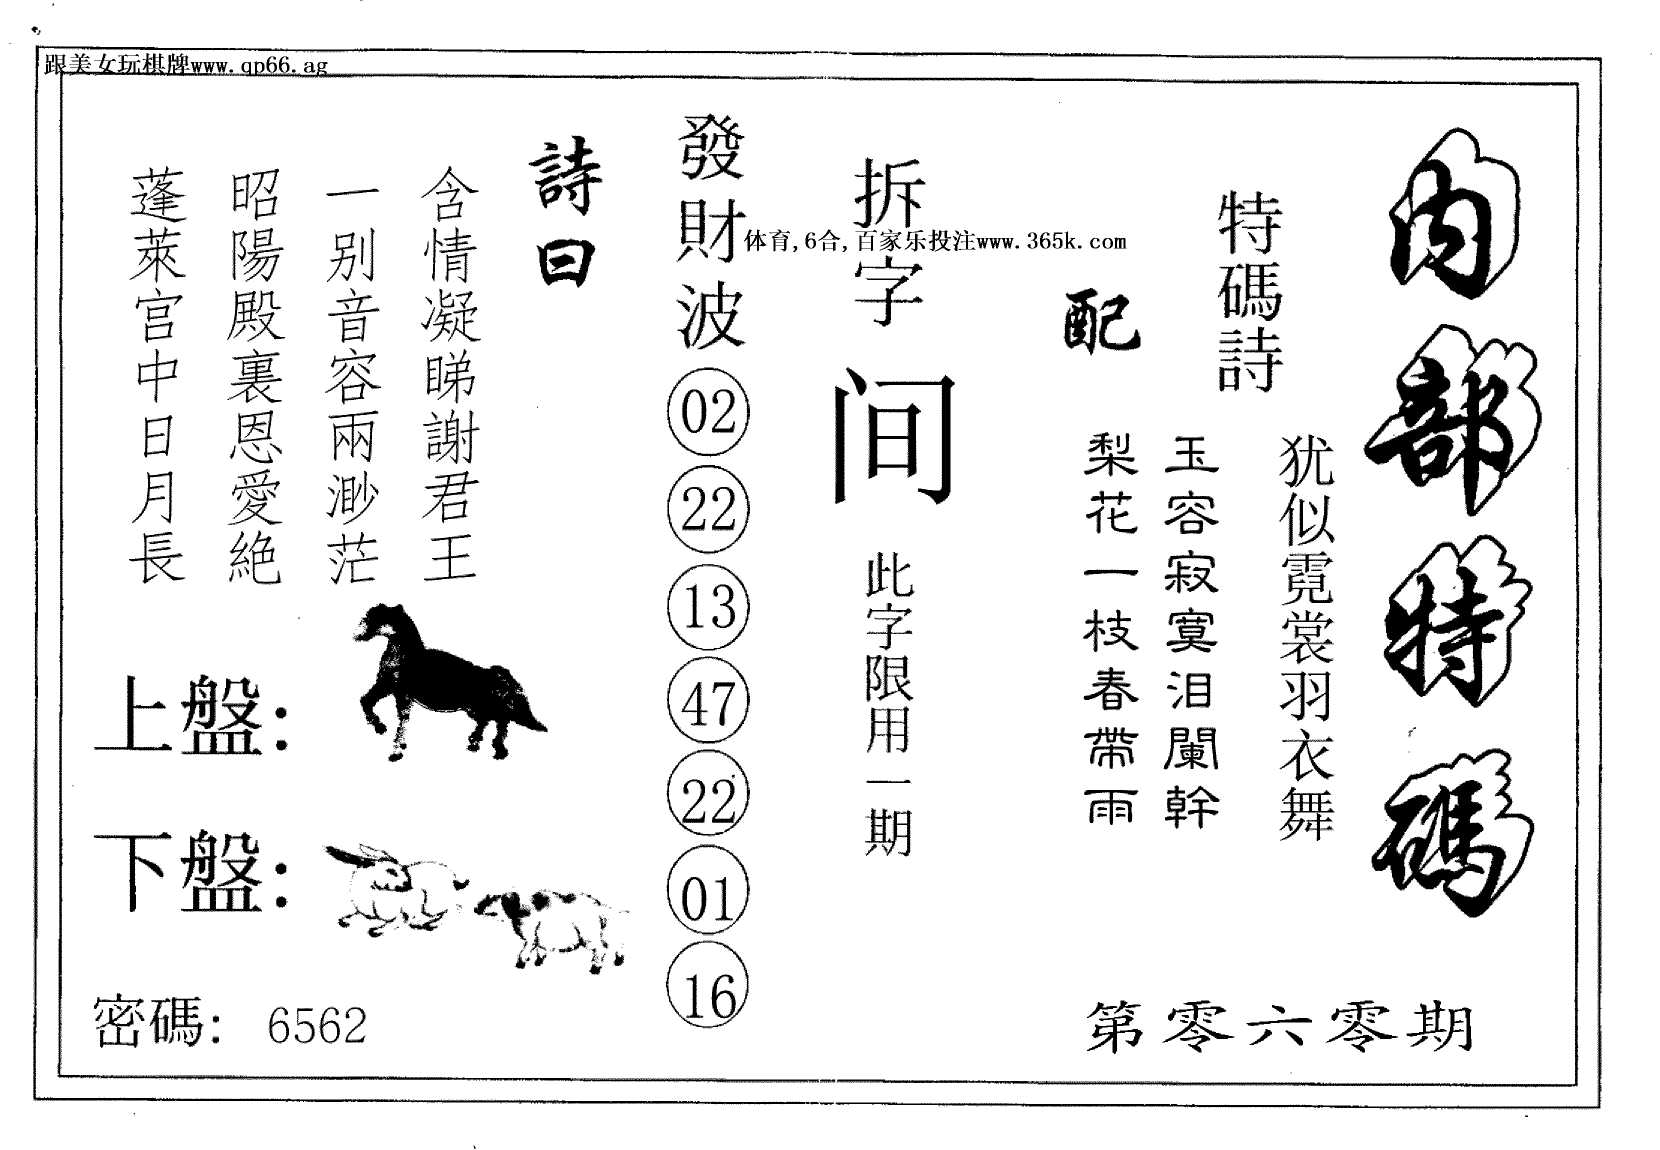 跟美女玩棋牌www.qp66.ag
內部特碼
特碼詩
猶似霓裳羽衣舞
配
玉容寂寞泪闌幹
梨花一枝春帶雨
拆字
间
此字限用一期
体育,6合,百家乐投注www.365k.com
發財波
02
22
13
47
22
01
16
詩曰
含情凝睇謝君王
一别音容兩渺茫
昭陽殿裏恩愛絕
蓬萊宫中日月長
上盤：
下盤：
密碼： 6562
第零六零期